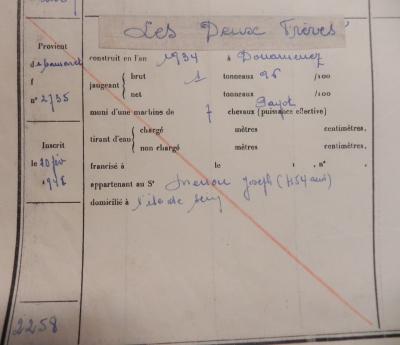 Les Deux Frères
Provient
d
f
n° 2735
construit en l'an 1934 à Douarnenez
jaugeant { brut 1 tonneaux 96 /100
net tonneaux /100
muni d'une machine de 7 chevaux (puissance effective)
tirant d'eau { chargé mètres centimètres.
non chargé mètres centimètres.
Inscrit
le 20 fév
194
francisé à le 1 , n°
appartenant au Sr Joseph (
domicilié à l'île de Sein
2258